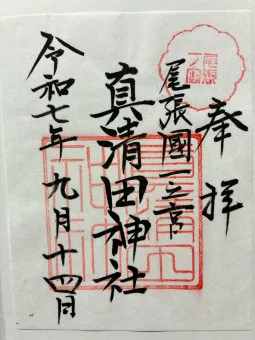 奉拝
尾張國一之宮
真清田神社
令和七年九月十四日